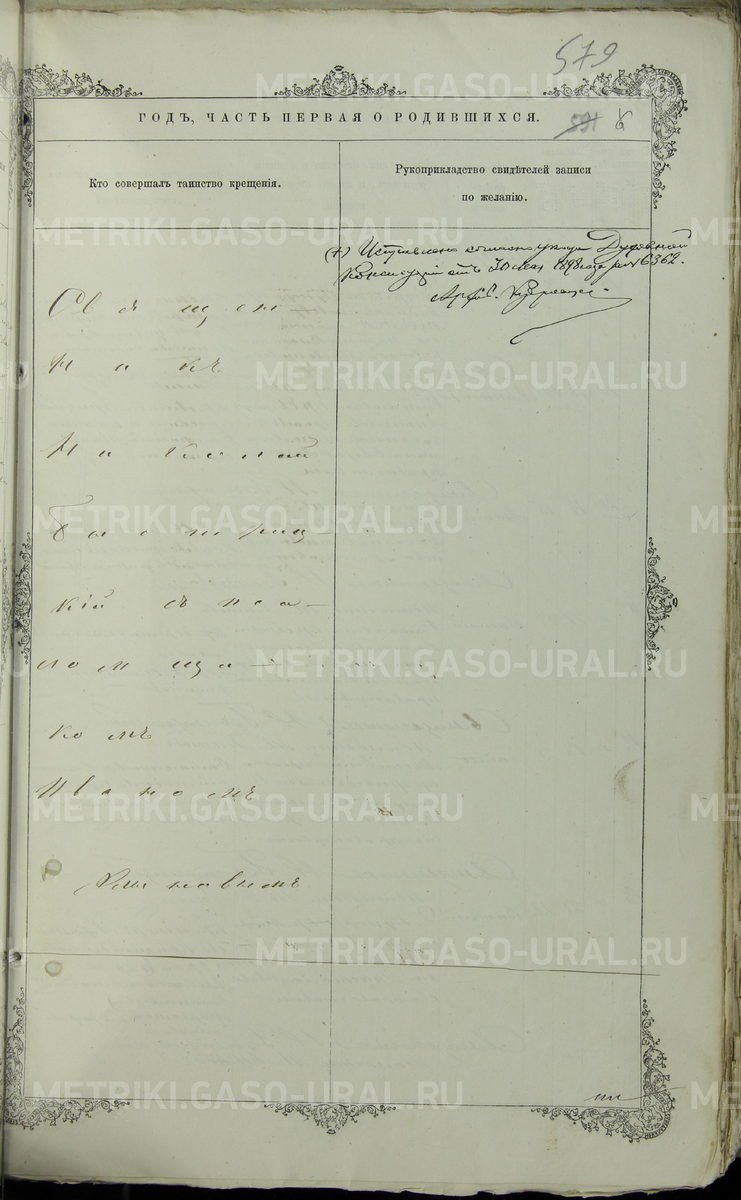 579
ГОДЪ, ЧАСТЬ ПЕРВАЯ О РОДИВШИХСЯ.
Кто совершалъ таинство крещенія.
Рукоприкладство свидѣтелей записи
по желанію.
(+) Исправлено согласно указу Духовной
Консисторіи отъ 30 мая 1898 года за № 6362.
Свящ. 
Свящeн-
никъ
Николай
Быстриц-
кій съ пса-
ломщи-
комъ
Иваномъ
METRIKI.GASO-URAL.RU